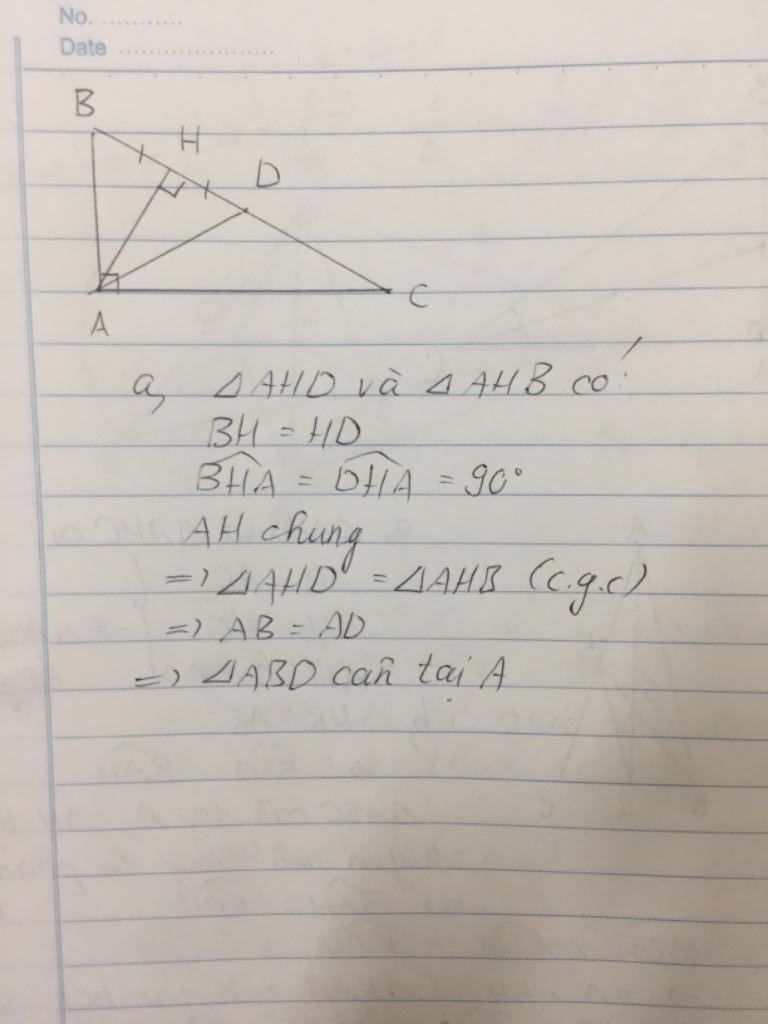 No. ...........
Date ......................
B
H
D
A
C
a, △AHD và △AHB có:
BH = HD
\widehat{BHA} = \widehat{DHA} = 90°
AH chung
=> △AHD = △AHB (c.g.c)
=> AB = AD
=> △ABD cân tại A